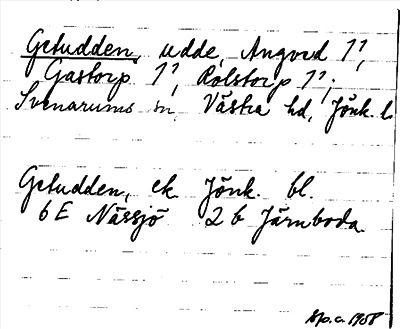 Getudden, udde, Angered 1¹,
Gastorp 1¹, Rolstorp 1¹;
Svenarums sn, Västra hd, Jönk. l.
Getudden, ek. Jönk. bl.
6 E Nässjö 2 b Järnboda
Sp.c. 1958